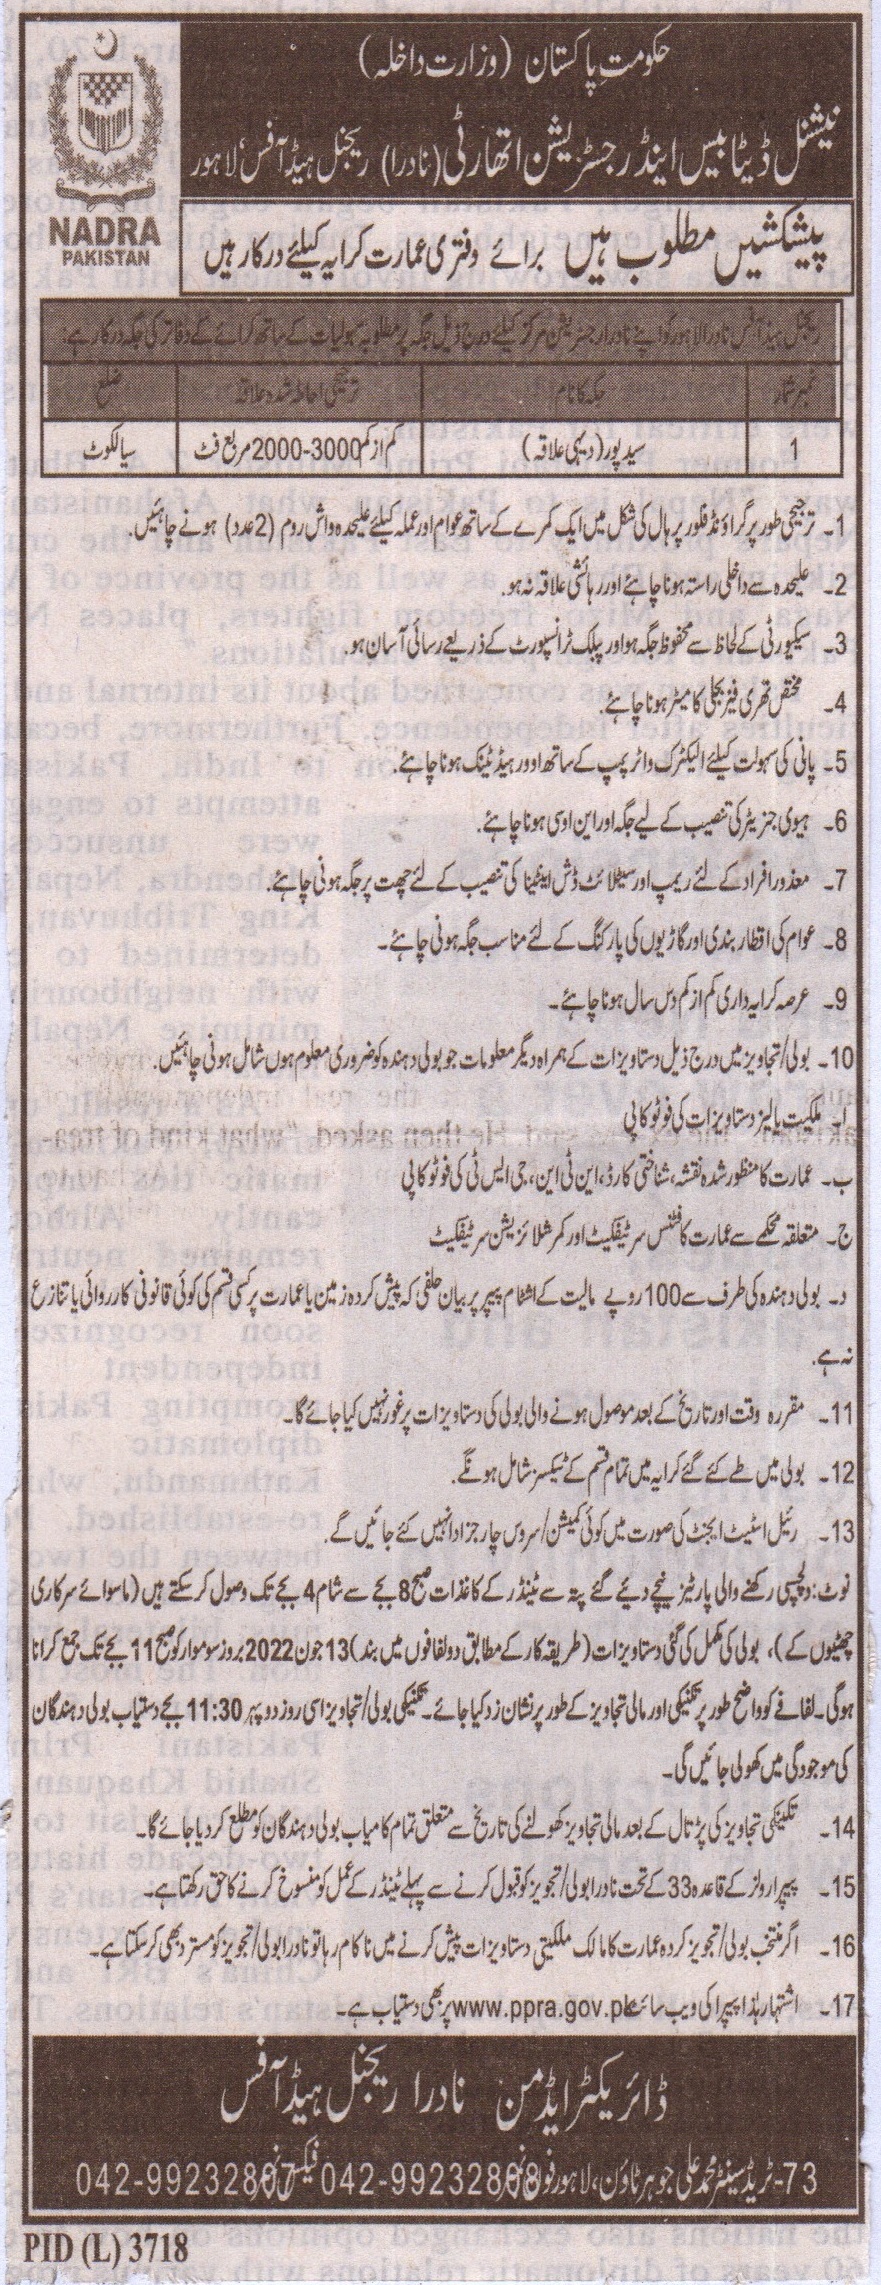 حکومت پاکستان (وزارت داخلہ)
نیشنل ڈیٹا بیس اینڈ رجسٹریشن اتھارٹی (نادرا) ریجنل ہیڈ آفس، لاہور
NADRA
PAKISTAN
پیشکشیں مطلوب ہیں برائے دفتری عمارت کرایہ کیلئے درکار ہیں
ریجنل ہیڈ آفس نادرا لاہور کو اپنے نادرا رجسٹریشن مرکز کیلئے درج ذیل جگہ پر مطلوبہ سہولیات کے ساتھ کرائے کے دفاتر کی جگہ درکار ہے:
نمبر شمار جگہ کا نام ترجیحی احاطہ شدہ علاقہ ضلع
1 سید پور (دیہی علاقہ) کم از کم 3000-2000 مربع فٹ سیالکوٹ
1۔ ترجیحی طور پر گراؤنڈ فلور پر ہال کی شکل میں ایک کمرے کے ساتھ عوام اور عملہ کیلئے علیحدہ واش روم (2 عدد) ہونے چاہئیں.
2۔ علیحدہ سے داخلی راستہ ہونا چاہئے اور رہائشی علاقہ نہ ہو.
3۔ سیکیورٹی کے لحاظ سے محفوظ جگہ ہو اور پبلک ٹرانسپورٹ کے ذریعے رسائی آسان ہو.
4۔ مختص تھری فیز بجلی کا میٹر ہونا چاہئے.
5۔ پانی کی سہولت کیلئے الیکٹرک واٹر پمپ کے ساتھ اوور ہیڈ ٹینک ہونا چاہئے.
6۔ ہیوی جنریٹر کی تنصیب کے لیے جگہ اور این او سی ہونا چاہئے.
7۔ معذور افراد کے لئے ریمپ اور سیٹلائٹ ڈش اینٹینا کی تنصیب کے لئے چھت پر جگہ ہونی چاہئے.
8۔ عوام کی قطار بندی اور گاڑیوں کی پارکنگ کے لئے مناسب جگہ ہونی چاہئے۔
9۔ عرصہ کرایہ داری کم از کم دس سال ہونا چاہئے۔
10۔ بولی/تجاویز میں درج ذیل دستاویزات کے ہمراہ دیگر معلومات جو بولی دہندہ کو ضروری معلوم ہوں شامل ہونی چاہئیں.
ا۔ ملکیت یا لیز دستاویزات کی فوٹو کاپی
ب۔ عمارت کا منظور شدہ نقشہ، شناختی کارڈ، این ٹی این، جی ایس ٹی کی فوٹو کاپی
ج۔ متعلقہ محکمے سے عمارت کا فٹنس سرٹیفکیٹ اور کمرشلائزیشن سرٹیفکیٹ
د۔ بولی دہندہ کی طرف سے 100 روپے مالیت کے اشٹام پیپر پر بیان حلفی کہ پیش کردہ زمین یا عمارت پر کسی قسم کی کوئی قانونی کارروائی یا تنازع
نہ ہے.
11۔ مقررہ وقت اور تاریخ کے بعد موصول ہونے والی بولی کی دستاویزات پر غور نہیں کیا جائے گا۔
12۔ بولی میں طے کئے گئے کرایہ میں تمام قسم کے ٹیکسز شامل ہونگے.
13۔ رئیل اسٹیٹ ایجنٹ کی صورت میں کوئی کمیشن/سروس چارجز ادا نہیں کئے جائیں گے.
نوٹ: دلچسپی رکھنے والی پارٹیز نیچے دیئے گئے پتہ سے ٹینڈر کے کاغذات صبح 8 بجے سے شام 4 بجے تک وصول کر سکتے ہیں (ماسوائے سرکاری
چھٹیوں کے)، بولی کی مکمل کی گئی دستاویزات (طریقہ کار کے مطابق دو لفافوں میں بند) 13 جون 2022 بروز سوموار کو صبح 11 بجے تک جمع کرانا
ہو گی۔ لفافے کو واضح طور پر تکنیکی اور مالی تجاویز کے طور پر نشان زد کیا جائے۔ تکنیکی بولی/تجاویز اسی روز دوپہر 11:30 بجے دستیاب بولی دہندگان
کی موجودگی میں کھولی جائیں گی۔
14۔ تکنیکی تجاویز کی پڑتال کے بعد مالی تجاویز کھولنے کی تاریخ سے متعلق تمام کامیاب بولی دہندگان کو مطلع کر دیا جائے گا۔
15۔ پیپرا رولز کے قاعدہ 33 کے تحت نادرا بولی/تجویز کو قبول کرنے سے پہلے ٹینڈر کے عمل کو منسوخ کرنے کا حق رکھتا ہے.
16۔ اگر منتخب بولی/تجویز کردہ عمارت کا مالک ملکیتی دستاویزات پیش کرنے میں ناکام رہا تو نادرا بولی/تجویز کو مسترد بھی کر سکتا ہے۔
17۔ اشتہار ہٰذا پیپرا کی ویب سائٹ www.ppra.gov.pk پر بھی دستیاب ہے۔
ڈائریکٹر ایڈمن نادرا ریجنل ہیڈ آفس
73-ٹریڈ سینٹر محمد علی جوہر ٹاؤن، لاہور فون نمبر 042-99232808 فیکس نمبر 042-99232867
PID (L) 3718